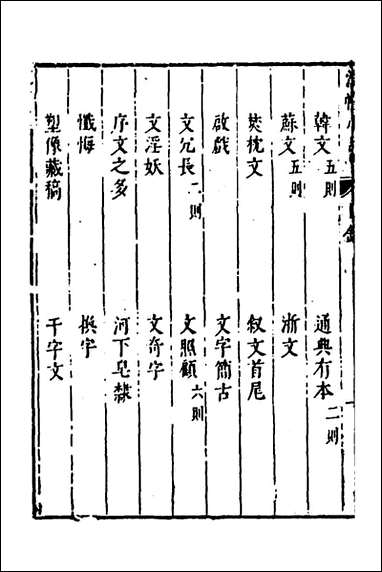 韓文五則　通典有本二則
蘇文五則　浙文
焚枕文　叙文首尾
啟戯　文字簡古
文冗長二則　文照顧六則
文淫妖　文奇字
序文之多　河下皂隸
懺悔　換字
塑像藏稿　千字文